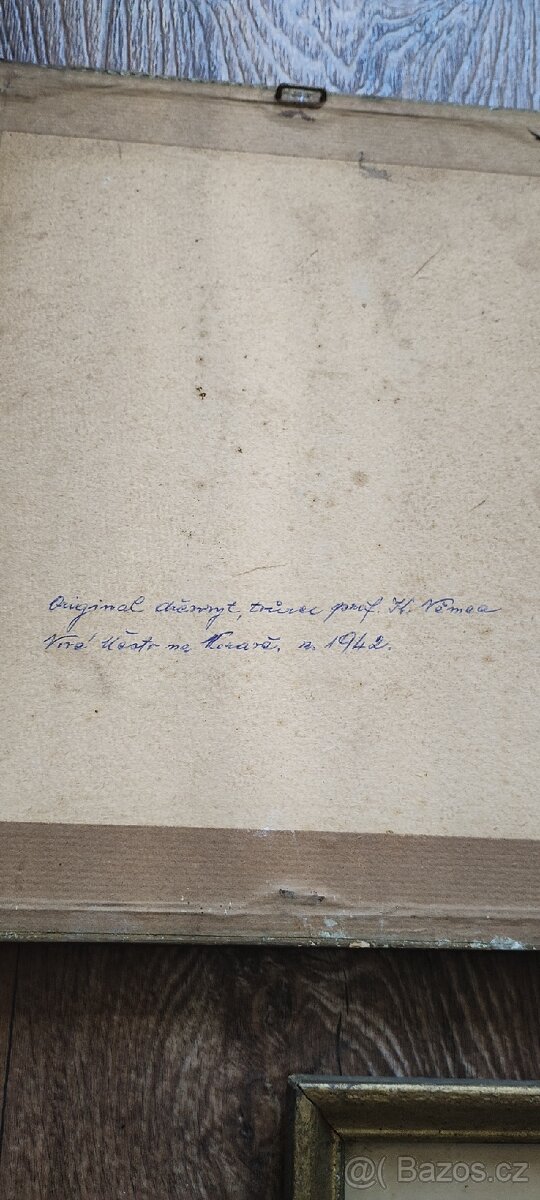 Originál dřevoryt, tvůrce prof. K. Němec
Nové Město na Moravě, r. 1942.
Bazos.cz